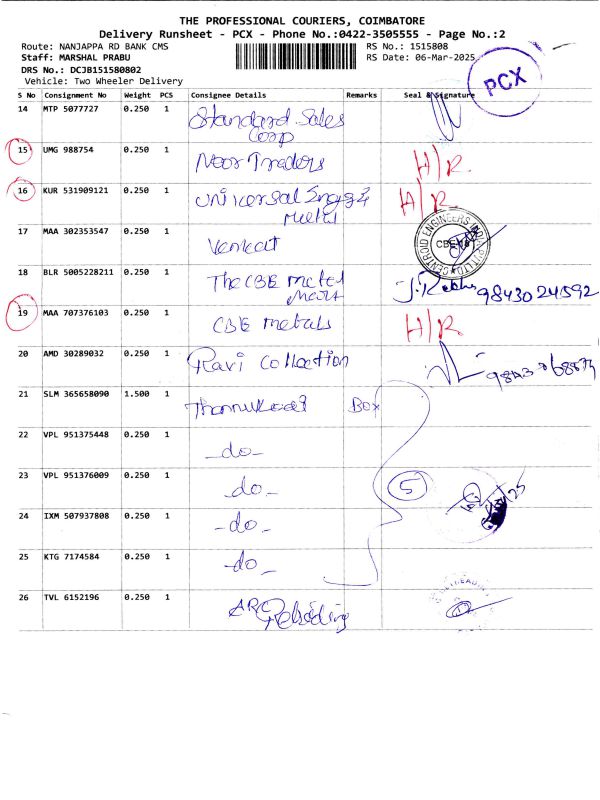 THE PROFESSIONAL COURIERS, COIMBATORE
Delivery Runsheet - PCX - Phone No.:0422-3505555 - Page No.:2
Route: NANJAPPA RD BANK CMS
RS No.: 1515808
Staff: MARSHAL PRABU
RS Date: 06-Mar-2025
DRS No.: DCJB151580802
Vehicle: Two Wheeler Delivery
PCX
S No Consignment No Weight PCS Consignee Details Remarks Seal & Signature
14 MTP 5077727 0.250 1 Standard Sales Corp
15 UMG 988754 0.250 1 Noor Traders H/R
16 KUR 531909121 0.250 1 Universal Engg & Metal H/R
17 MAA 302353547 0.250 1 Venkat
CENTROID ENGINEERS
18 BLR 5005228211 0.250 1 The CBE metal mart 9843024592
19 MAA 707376103 0.250 1 CBE metals H/R
20 AMD 30289032 0.250 1 Ravi Collection
21 SLM 365658090 1.500 1 Box
22 VPL 951375448 0.250 1 -do-
23 VPL 951376009 0.250 1 -do- 5
24 IXM 507937808 0.250 1 -do-
25 KTG 7174584 0.250 1 -do-
26 TVL 6152196 0.250 1 ARC